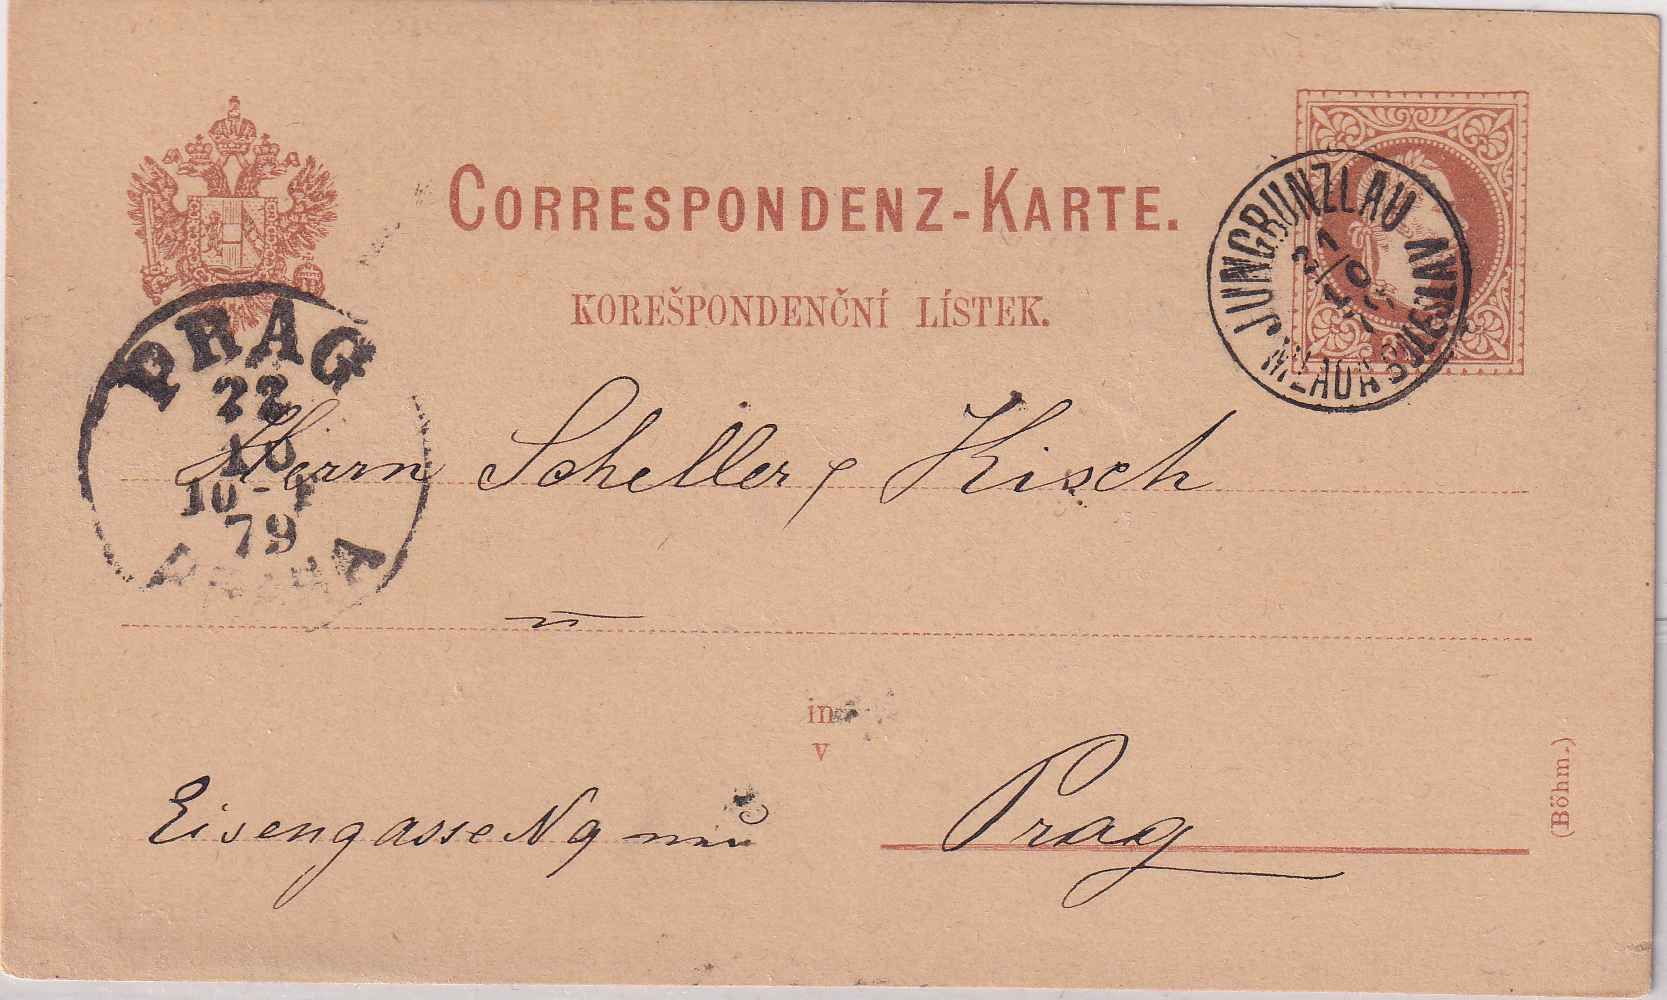 CORRESPONDENZ-KARTE.
KOREŠPONDENČNÍ LÍSTEK.
JUNGBUNZLAU
21/10
MLADA BOLESLAV
PRAG
22
10
10-
79
Herrn Scheller & Kisch
in
v
Eisengasse N 9
Prag
(Böhm.)